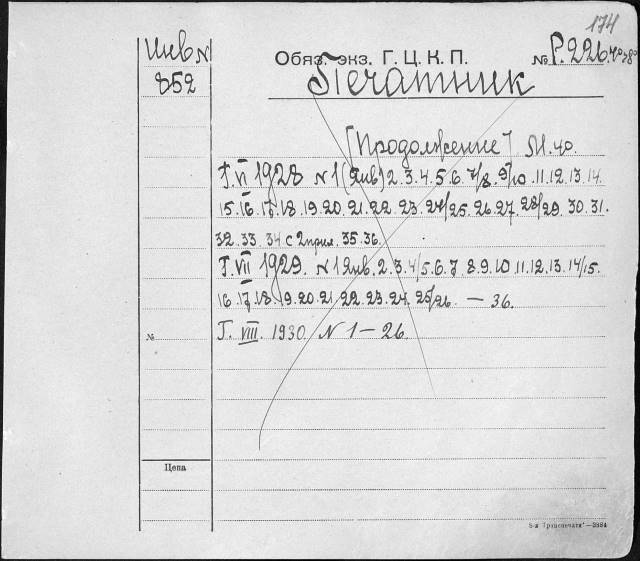 174
Инв № 852
Обяз. экз. Г. Ц. К. П. № Р.226
Печатник
[Продолжение] М. 40.
Г. VI 1928 № 1 (Янв) 2. 3. 4. 5. 6. 7/8. 9/10 11. 12. 13. 14.
15. 16. 17. 18. 19. 20. 21. 22. 23. 24/25. 26. 27. 28/29. 30. 31.
32. 33. 34 с 2 прил. 35. 36.
Г. VII 1929. № 1 Янв. 2. 3. 4/5. 6. 7 8. 9. 10 11. 12. 13. 14/15.
16. 17. 18. 19. 20. 21. 22. 23. 24. 25/26. — 36.
Г. VIII. 1930. № 1 — 26.
№
Цена
8-я „Транспечати“—3884